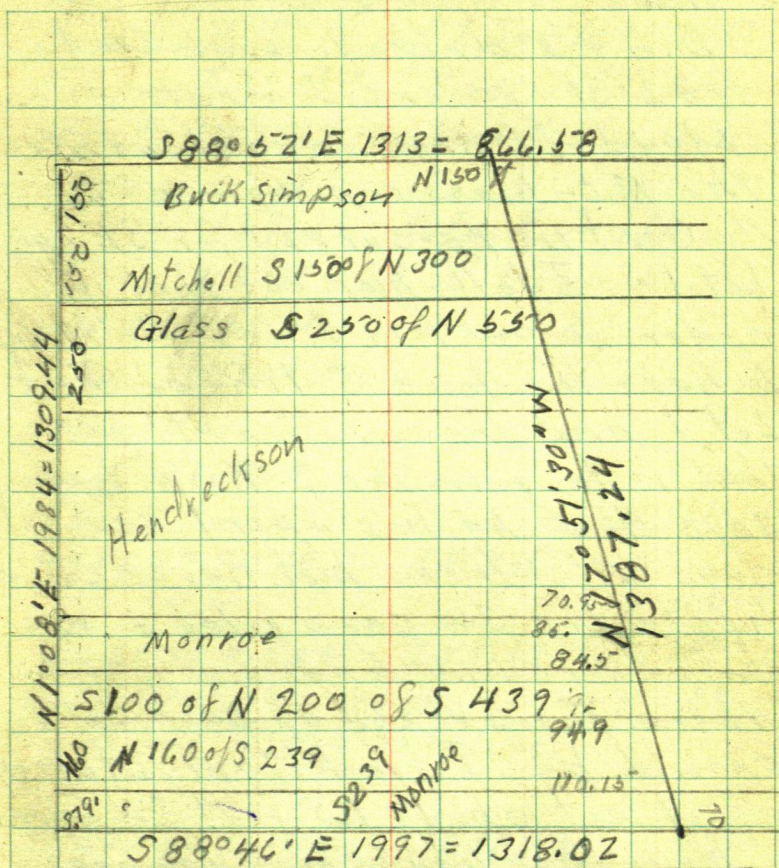 S88° 52' E 1313 = 866.58
150
Buck Simpson N 150 ft
150
Mitchell S 150 of N 300
250
Glass S 250 of N 550
N1°08'E 1984 = 1309.44
Hendreckson
N 17° 51' 30" W
1387.24
70.95
Monroe
85.
84.5
S100 of N 200 of S 439
94.9
160
N 160 of S 239
S239
Monroe
110.15
S79'
10
S88°46' E 1997 = 1318.02